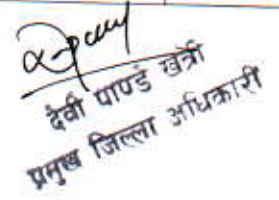 देवी पाण्डे खत्री
प्रमुख जिल्ला अधिकारी